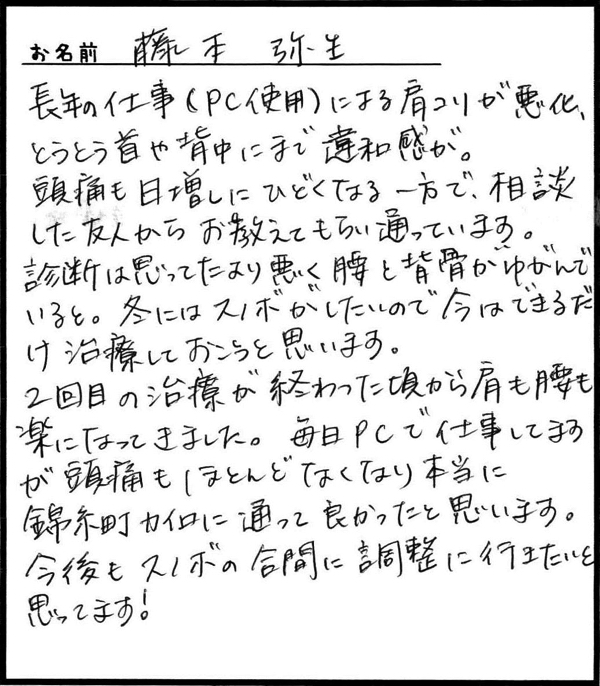 お名前 藤本 弥生
長年の仕事(PC使用)による肩コリが悪化、
とうとう首や背中にまで違和感が。
頭痛も日増しにひどくなる一方で、相談
した友人からお教えてもらい通っています。
診断は思ってたより悪く腰と背骨がゆがんで
いると。冬にはスノボがしたいので今はできるだ
け治療しておこうと思います。
2回目の治療が終わった頃から肩も腰も
楽になってきました。毎日PCで仕事してます
が頭痛もほとんどなくなり本当に
錦糸町カイロに通って良かったと思います。
今後もスノボの合間に調整に行きたいと
思ってます!